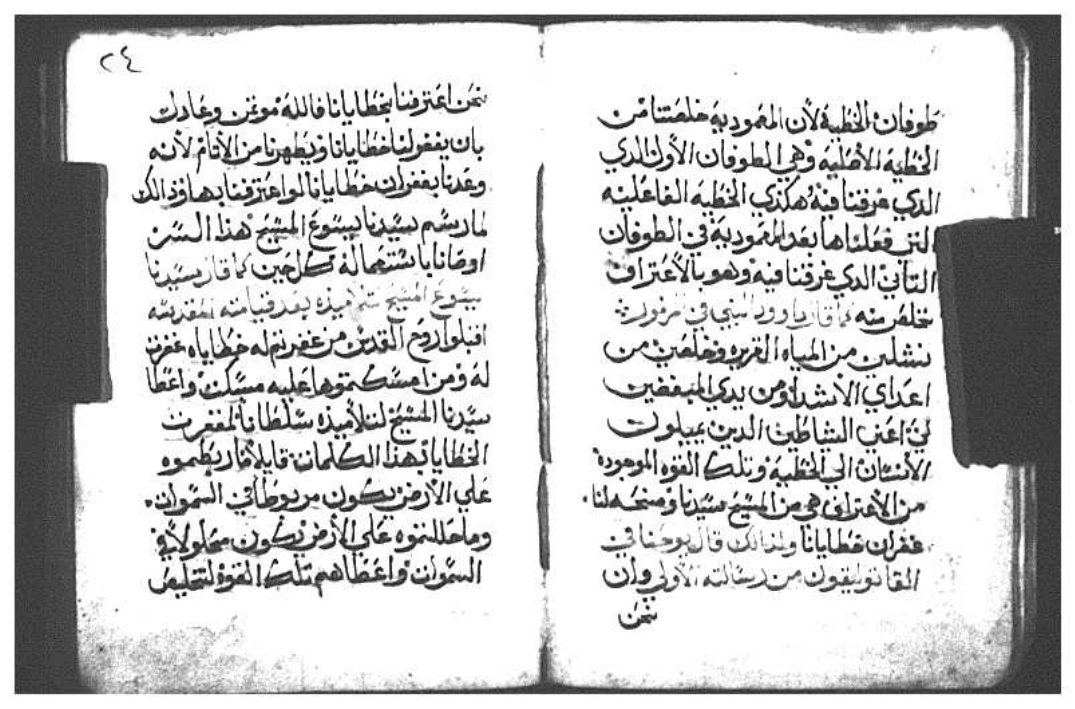 طوفان الخطية لأن المعمودية خلصتنا من
الخطية الأصليه وهي الطوفان الأول الدي
الدي غرقنا فيه هكذي الخطيه الفاعليه
التي فعلناها بعد المعمودية في الطوفان
التأني الدي غرقنا فيه وهو بالأعتراف
نخلص منه كما قال داوود النبي في مزموره
نتشلني من المياه الغزيره وخلصني من
اعداي الأشدا ومن يدي المبغضين
لي اعني الشاطين الدين يميلون
الأنسان الي الخطيه وتلك القوه الموجودة
من الأعتراف هي من المسيح سيدنا ومنحه لنا
غفران خطايانا ولدالك قال يوحنا في
القاتوليقون من رسالته الأولي وان
نحن
٢٤
نحن اعترفنا بخطايانا فالله مومن وعادل
بان يغفر لنا خطايانا ويطهرنا من الأتام لأنه
وعدنا بغفران خطايانا لو اعترفنا بها ودالك
لما رسم سيدنا يسوع المسيح هذا السر
اوصانا باستعماله كل حين كما قال سيدنا
يسوع المسيح لتلاميذه بعد قيامته المقدسه
اقبلوا روح القدس من غفرتم له خطاياه غفرت
له ومن امسكتموها عليه مسكت واعطا
سيدنا المسيح لتلاميذه سلطانا لمغفرت
الخطايا بهذا الكلمات قايلا ما ربطموه
علي الأرض يكون مربوطا في السموات
وما حللتموه علي الأرض يكون محلولا في
السموات واعطاهم تلك القوة لتخليص